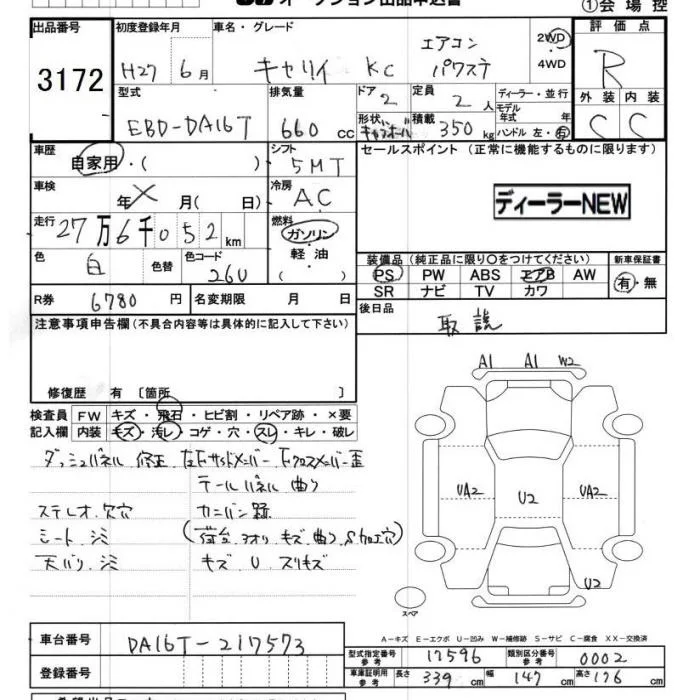 オークション出品申込書
①会場控
出品番号 初度登録年月 車名・グレード 評価点
3172 H27 6月 キャリイ KC エアコン パワステ 2WD・4WD R
型式 排気量 ドア 定員 ディーラー・並行 外装 内装
EBD-DA16T 660cc 2 2人 モデル年式 年 C C
形状 積載 350kg ハンドル 左・右
車歴 シフト セールスポイント (正常に機能するものに限ります)
自家用・( ) 5MT
車検 冷房 ディーラーNEW
年×月( 日) AC
走行 27万6千052km 燃料 ガソリン・軽油・( )
色 白 色替 色コード 26U
装備品(純正品に限り○をつけてください) 新車保証書
PS PW ABS エアB AW 有・無
SR ナビ TV カワ
R券 6780円 名変期限 月 日 後日品
取説
注意事項申告欄(不具合内容等は具体的に記入して下さい)
修復歴 有〔箇所 〕
検査員 FW キズ・飛石・ヒビ割・リペア跡・×要
記入欄 内装 キズ・汚レ・コゲ・穴・スレ・キレ・破レ
ダッシュパネル 修正
テールパネル 曲り
ステレオ.欠穴 カニバン跡
シート.シミ
天バリ.シミ キズ.U.スリキズ
A1 A1 W2
UA2 U2 UA2
U2
スペア
A−キズ E−エクボ U−凹み W−補修跡 S−サビ C−腐食 XX−交換済
車台番号 DA16T-217573
型式指定番号 参考 17596 類別区分番号 参考 0002
登録番号 車庫証明用 参考 長さ 339cm 幅 147cm 高さ 176cm